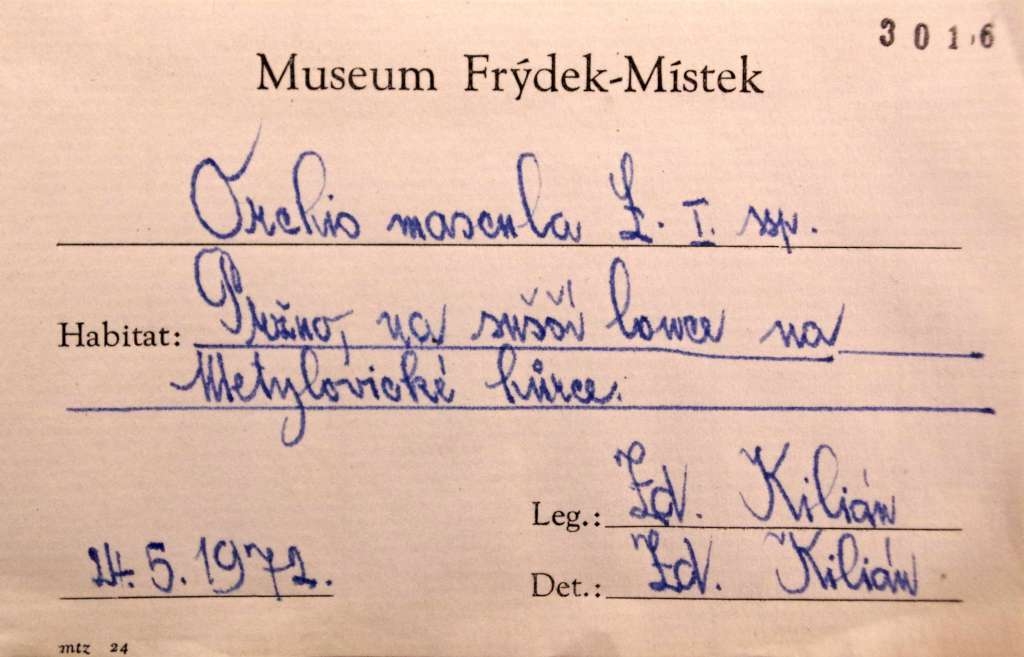 3016
Museum Frýdek-Místek
Orchis mascula L. I. ssp.
Habitat: Pržno, na sušší louce na
Metylovické hůrce.
Leg.: Zd. Kilián
24.5.1972. Det.: Zd. Kilián
mtz 24